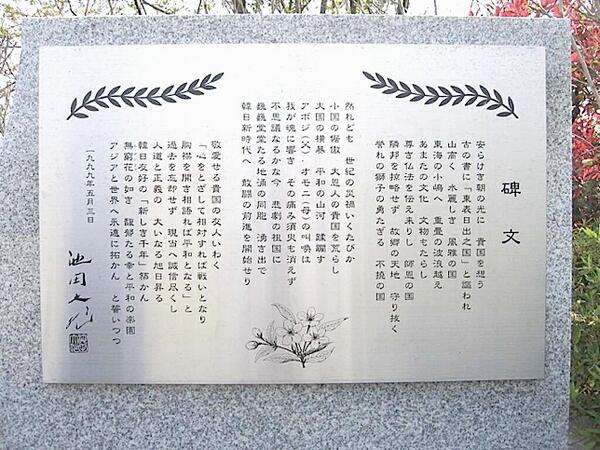 碑文
安らけき朝の光に　貴国を想う
古の書に「東表日出之国」と謳われ
山高く　水麗しき　風雅の国
東海の小嶋へ　重畳の波浪越え
あまたの文化　文物もたらし
尊き仏法を伝え来りし　師恩の国
隣邦を掠略せず　故郷の天地　守り抜く
誉れの獅子の勇たぎる　不撓の国
然れども　世紀の災禍いくたびか
小国の倨傲　大恩人の貴国を荒らし
大国の横暴　平和の山河　蹂躙す
アボジ（父）・オモニ（母）の叫喚は
我が魂に響き　その痛み須臾も消えず
不思議なるかな今　悲劇の祖国に
巍巍堂堂たる地涌の同胞　湧き出で
韓日新時代へ　敢闘の前進を開始せり
敬愛せる貴国の友人いわく
「心をとざして相対すれば戦いとなり
胸襟を開き相語れば平和となる」と
過去を忘却せず　現当へ誠信尽くし
人道と正義の　大いなる旭日昇る
韓日友好の「新しき千年」築かん
無窮花の如き　馥郁たる幸と平和の楽園
アジアと世界へ永遠に拓かん　と誓いつつ
一九九九年五月三日
池田大作